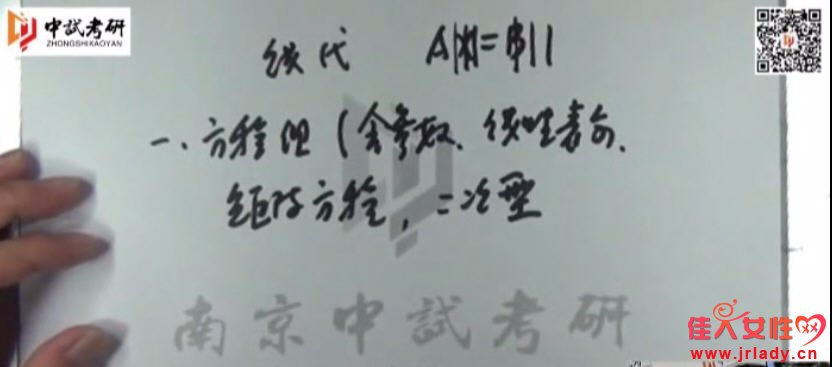 中試考研
ZHONGSHIKAOYAN
线代
一、方程组（含参数、线性表示、
矩阵方程，二次型
南京中試考研
佳人女性网
www.jrlady.cn